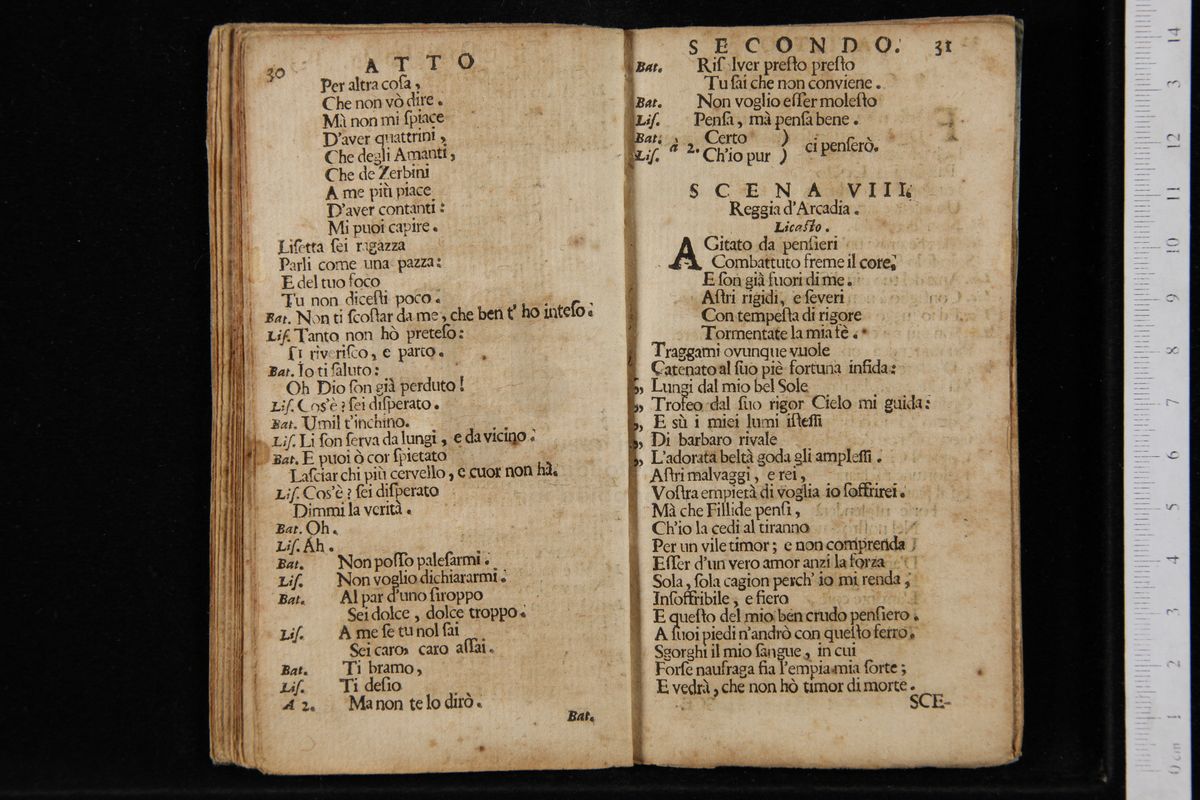 30 ATTO
Per altra cosa,
Che non vò dire.
Mà non mi spiace
D'aver quattrini,
Che degli Amanti,
Che de Zerbini
A me più piace
D'aver contanti:
Mi puoi capire.
Lisetta sei ragazza
Parli come una pazza:
E del tuo foco
Tu non dicesti poco.
Bat. Non ti scostar da me, che ben t' ho inteso.
Lis. Tanto non hò preteso:
Ti riverisco, e parto.
Bat. Io ti saluto:
Oh Dio son già perduto!
Lis. Cos'è? sei disperato.
Bat. Umil t'inchino.
Lis. Li son serva da lungi, e da vicino.
Bat. E puoi ò cor spietato
Lasciar chi più cervello, e cuor non hà.
Lis. Cos'è? sei disperato
Dimmi la verità.
Bat. Oh.
Lis. Ah.
Bat. Non posso palesarmi.
Lis. Non voglio dichiararmi.
Bat. Al par d'uno siroppo
Sei dolce, dolce troppo.
Lis. A me se tu nol sai
Sei caro, caro assai.
Bat. Ti bramo,
Lis. Ti desio
A 2. Ma non te lo dirò.
Bat.
SECONDO. 31
Bat. Ris lver presto presto
Tu sai che non conviene.
Bat. Non voglio esser molesto
Lis. Pensa, mà pensa bene.
Bat. Certo )
à 2. ci penserò.
Lis. Ch'io pur )
SCENA VIII.
Reggia d'Arcadia.
Licasto.
AGitato da pensieri
Combattuto freme il core,
E son già fuori di me.
Astri rigidi, e severi
Con tempesta di rigore
Tormentate la mia fè.
Traggami ovunque vuole
Catenato al suo piè fortuna infida:
„ Lungi dal mio bel Sole
„ Trofeo dal suo rigor Cielo mi guida:
„ E sù i miei lumi istessi
„ Di barbaro rivale
„ L'adorata beltà goda gli amplessi.
Astri malvaggi, e rei,
Vostra empietà di voglia io soffrirei.
Mà che Fillide pensi,
Ch'io la cedi al tiranno
Per un vile timor; e non comprenda
Esser d'un vero amor anzi la forza
Sola, sola cagion perch' io mi renda,
Insoffribile, e fiero
E questo del mio ben crudo pensiero.
A suoi piedi n'andrò con questo ferro,
Sgorghi il mio sangue, in cui
Forse naufraga fia l'empia mia sorte;
E vedrà, che non hò timor di morte.
SCE-
0 cm 1 2 3 4 5 6 7 8 9 10 11 12 13 14